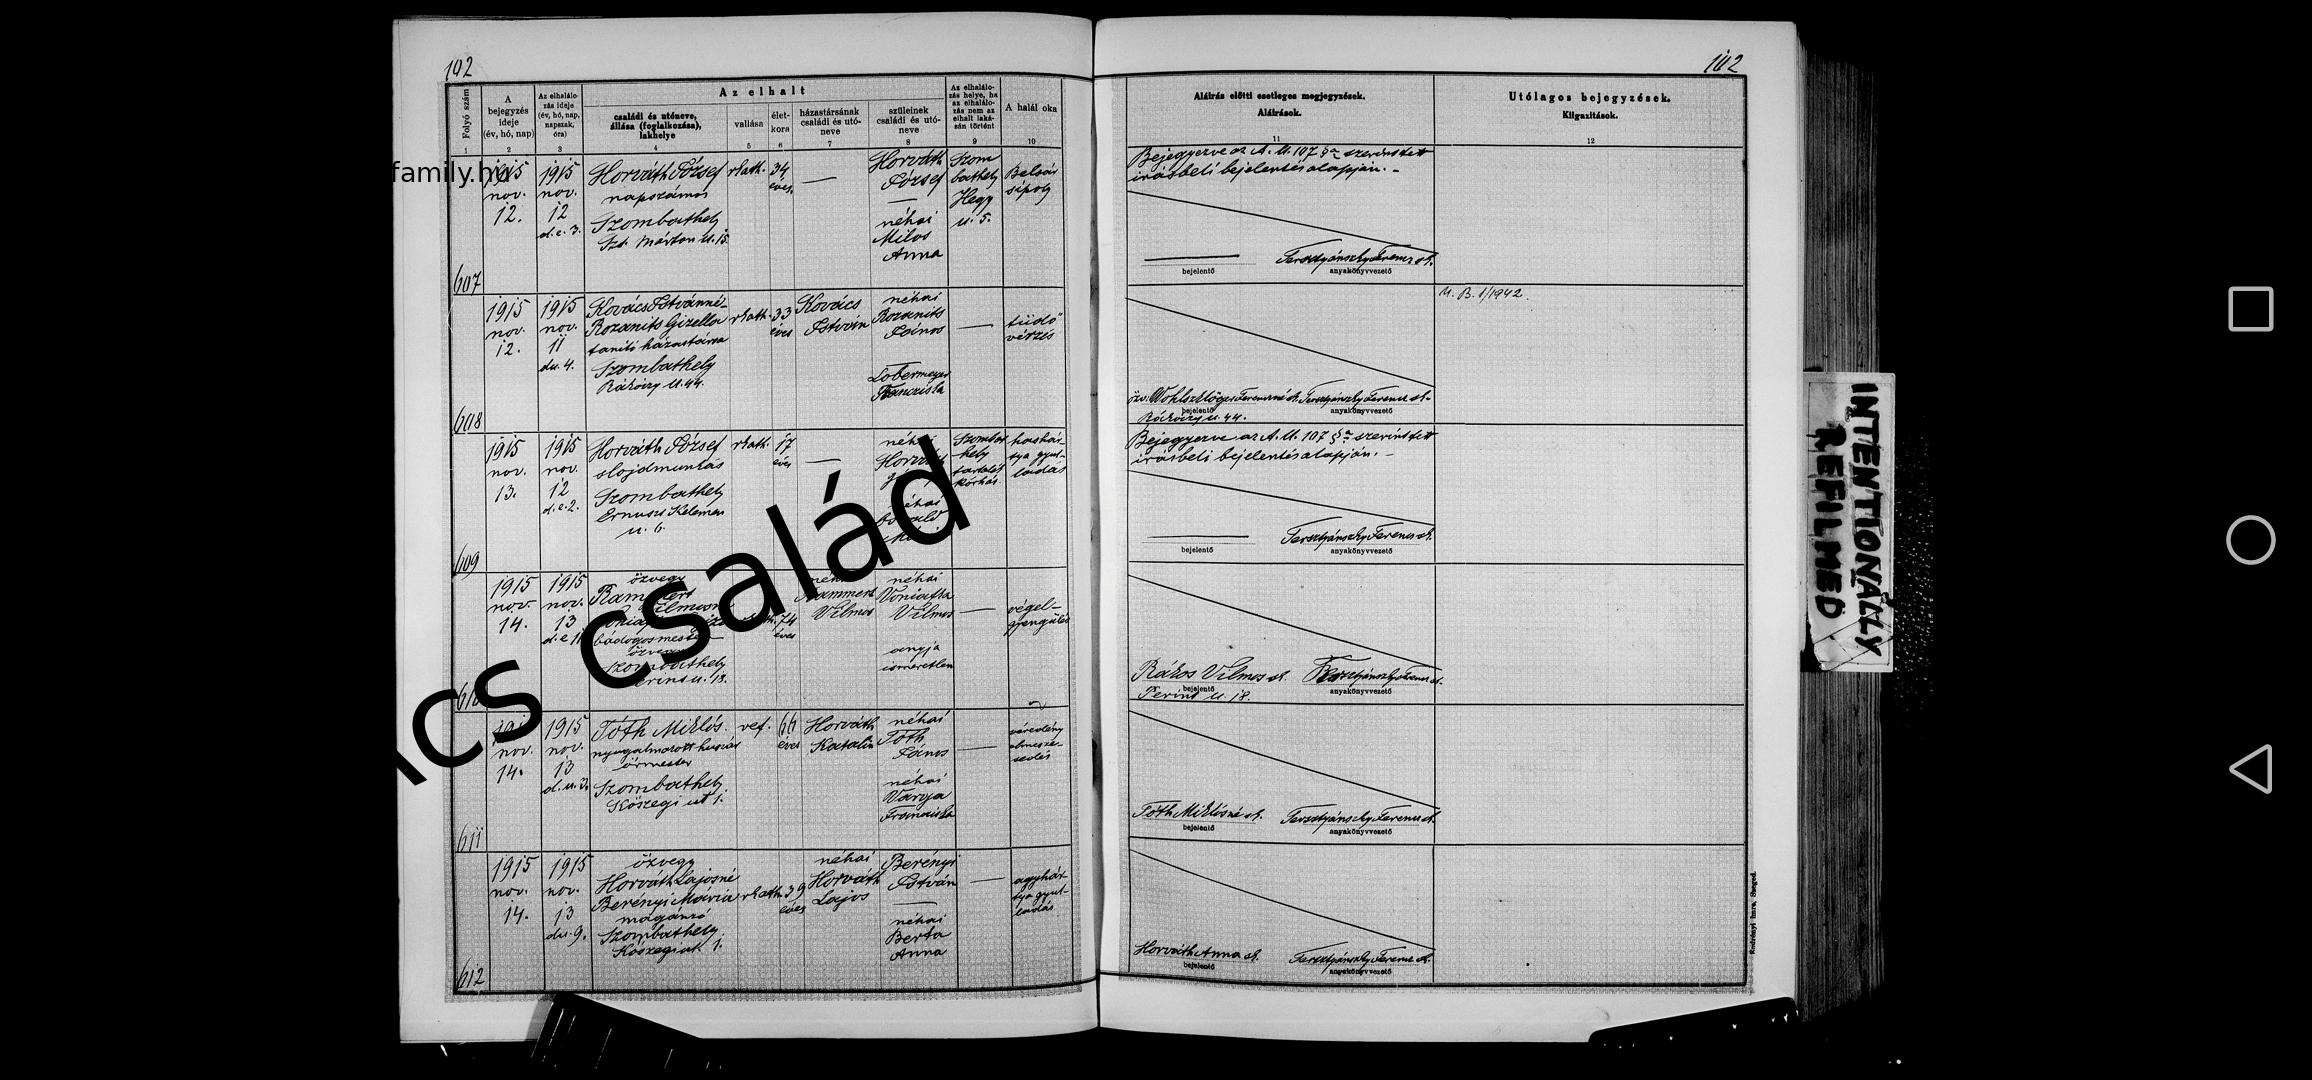 102
102
Folyó szám
A bejegyzés ideje (év, hó, nap)
Az elhalálozás ideje (év, hó, nap, napszak, óra)
Az elhalt
családi és utóneve, állása (foglalkozása), lakhelye
vallása
életkora
házastársának családi és utóneve
szüleinek családi és utóneve
Az elhalálozás helye, ha az elhalálozás nem az elhalt lakásán történt
A halál oka
Aláírás előtti esetleges megjegyzések.
Aláírások.
Utólagos bejegyzések.
Kiigazítások.
1 2 3 4 5 6 7 8 9 10 11 12
family.hu
607
1915 nov. 12.
1915 nov. 12 d.e. 3.
Horváth József
napszámos
Szombathely
Szt. Márton u. 15.
rkath.
34 éves
Horváth József
néhai Milos Anna
Szombathely Hegy u. 5.
Bejegyezve az A. U. 107 §a szerint tett
írásbeli bejelentés alapján. -
bejelentő
Tersztyánszky Ferenc sk.
anyakönyvvezető
608
1915 nov. 12.
1915 nov. 11 du. 4.
Kovács Istvánné
Gizella
tanító házastársa
Szombathely
Rákóczy u. 44.
rkath.
33 éves
Kovács István
néhai
János
Lobermayer Franciska
tüdővérzés
Ferencné sk.
bejelentő
Rákóczy u. 44.
Tersztyánszky Ferenc sk.
anyakönyvvezető
U. B. 1/1942.
609
1915 nov. 13.
1915 nov. 12 d.e. 2.
Horváth József
Szombathely
Ernuszt Kelemen
u. 6.
rkath.
17 éves
Horváth
néhai
hashártya gyulladás
Bejegyezve az A. U. 107 §a szerint tett
írásbeli bejelentés alapján. -
bejelentő
Tersztyánszky Ferenc sk.
anyakönyvvezető
cs család
1915 nov. 14.
1915 nov. 13 d.e. 11
özvegy
bádogosmester
özvegye
Szombathely
Perint u. 18.
74 éves
Vilmos
néhai
Vilmos
anyja ismeretlen
végelgyengülés
Rákos Vilmos sk.
bejelentő
Perint u. 18.
Tersztyánszky Ferenc sk.
anyakönyvvezető
611
nov. 14.
1915 nov. 13
Tóth Miklós
nyugalmazott huszár
őrmester
Szombathely
Kőszegi ut 1.
66 éves
Horváth Katalin
néhai Tóth János
néhai Varga Franciska
Tóth Miklósné sk.
bejelentő
Tersztyánszky Ferenc sk.
anyakönyvvezető
612
1915 nov. 14.
1915 nov. 13 du. 9.
özvegy
Horváth Lajosné
Berényi Mária
magánzó
Szombathely
Kőszegi ut. 1.
rkath.
39 éves
néhai Horváth Lajos
Berényi István
néhai Berta Anna
agyhártya gyulladás
Horváth Anna sk.
bejelentő
Tersztyánszky Ferenc sk.
anyakönyvvezető
INTENTIONALLY
REFILMED